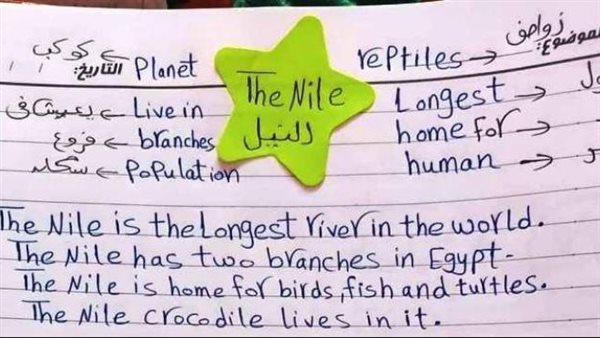 الموضوع: زواحف ← reptiles
التاريخ: كوكب ← Planet
The Nile
النيل
Longest →
Live in → يعيش في
home for →
branches → فروع
human →
Population →
The Nile is the Longest river in the world.
The Nile has two branches in Egypt.
The Nile is home for birds, fish and turtles.
The Nile crocodile lives in it.